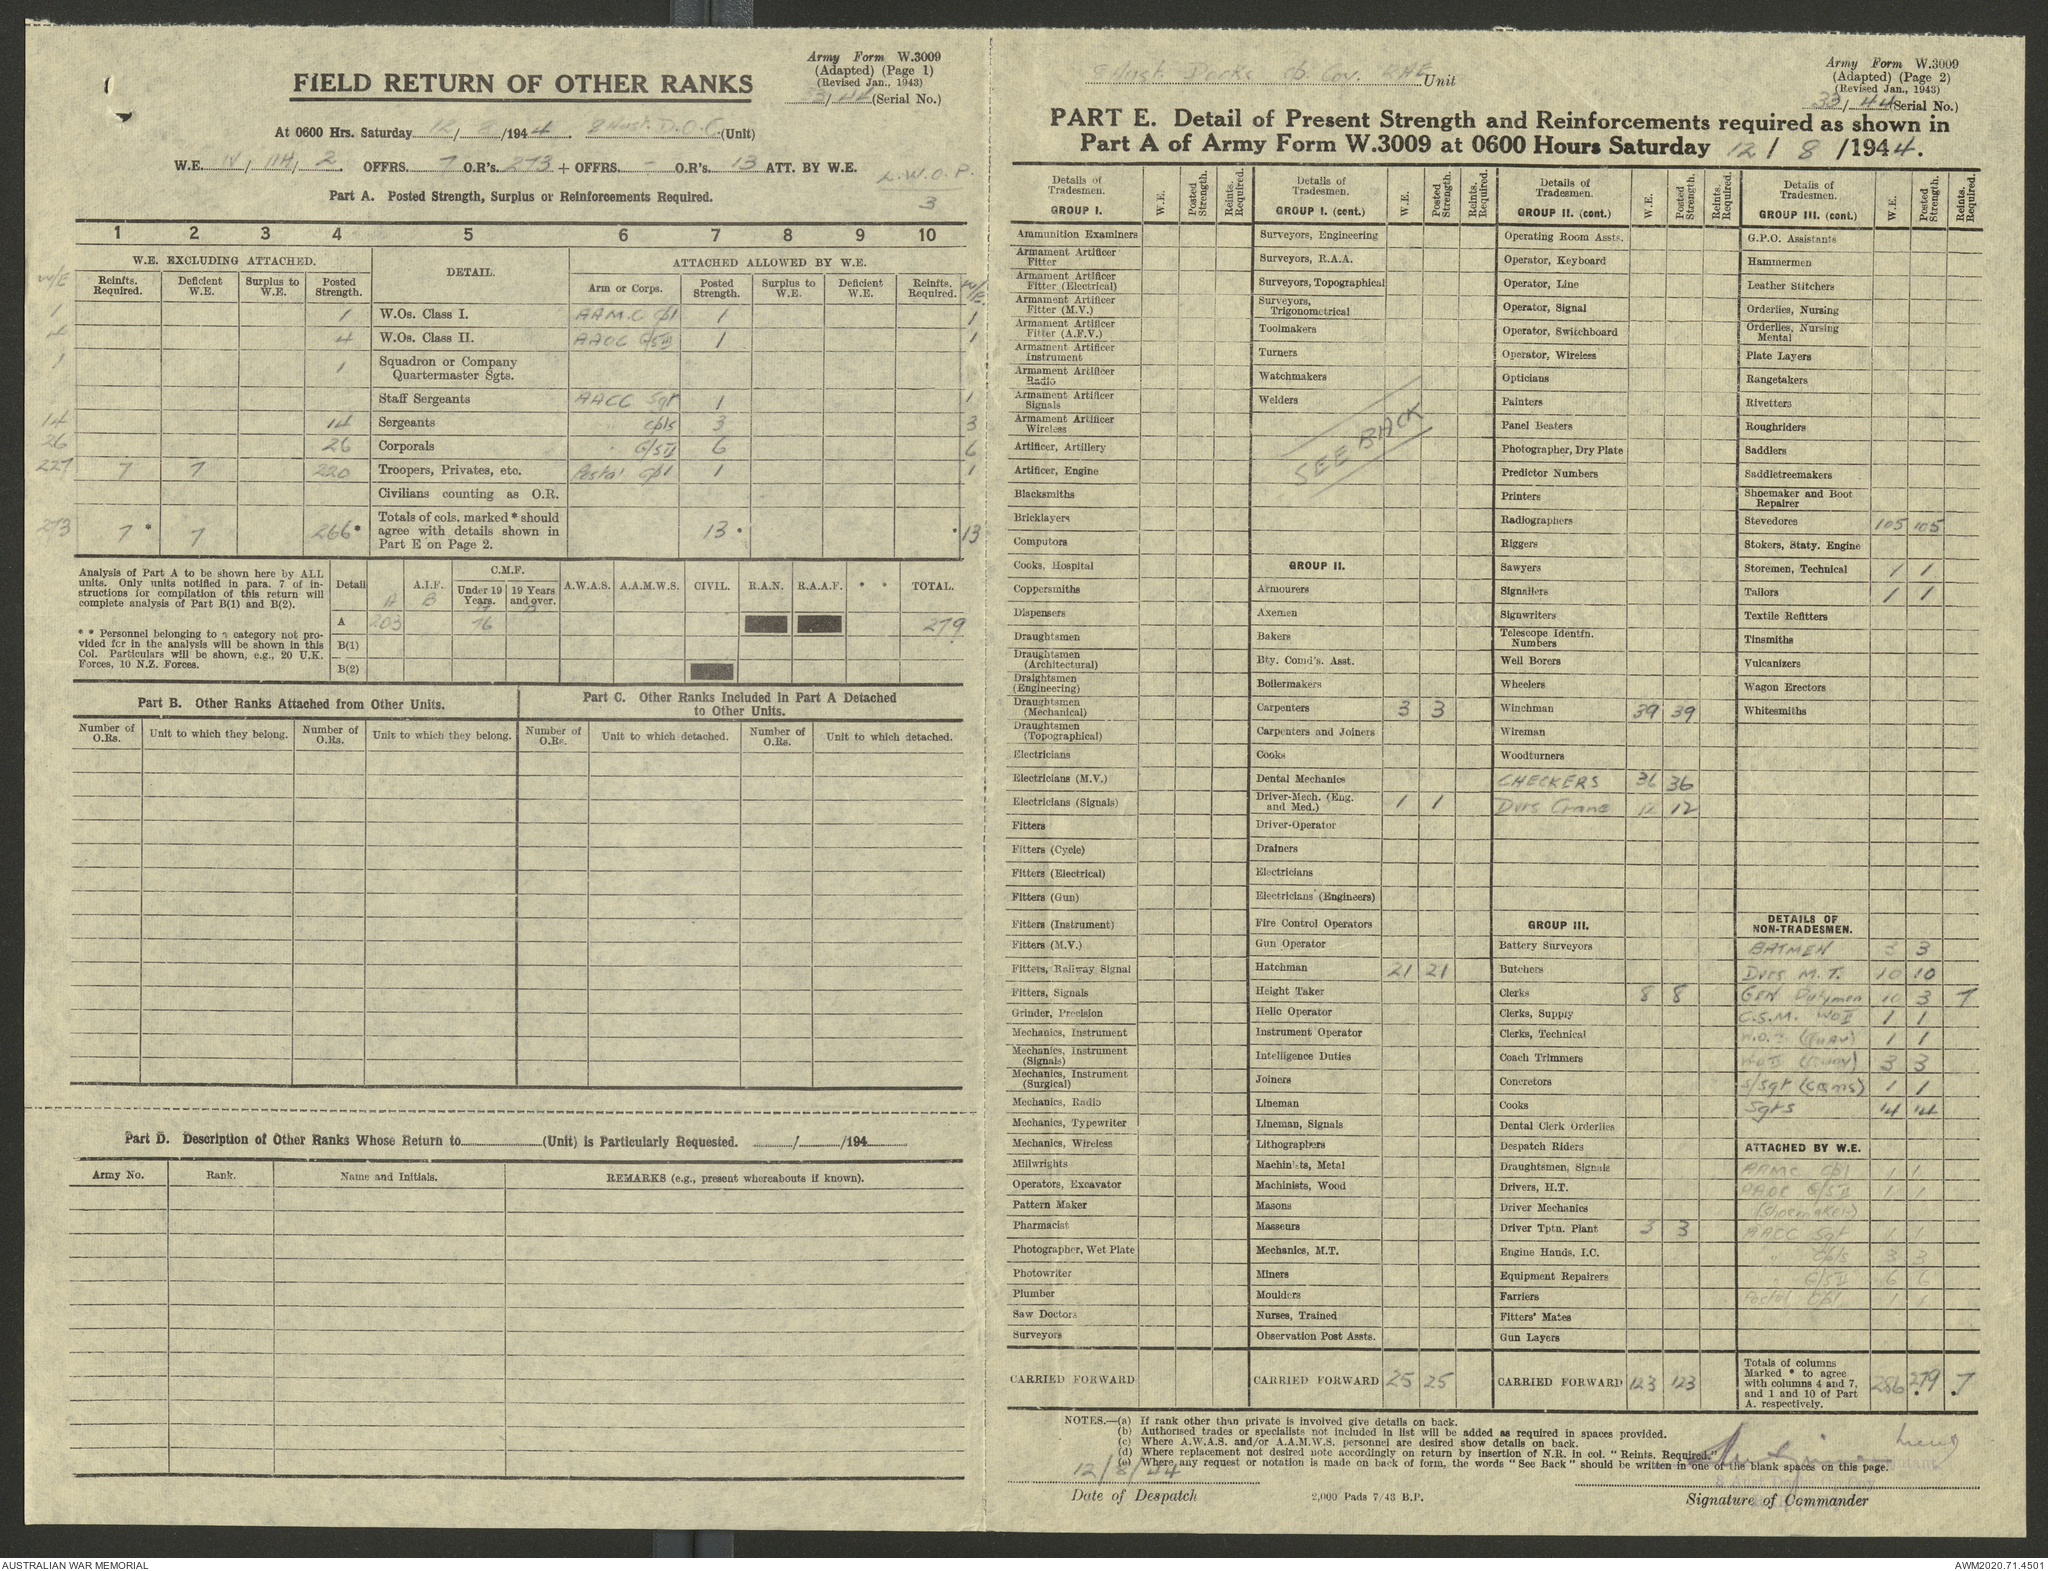 Army Form W.3009
(Adapted) (Page 1)
(Revised Jan., 1943)
33/44 (Serial No.)
FIELD RETURN OF OTHER RANKS
At 0600 Hrs. Saturday 12/8/1944. 8 Aust. D.O.C. (Unit)
W.E. IV/11H/2. OFFRS. 7 O.R's. 273 + OFFRS. - O.R's. 13 ATT. BY W.E.
L.W.O.P.
3
Part A. Posted Strength, Surplus or Reinforcements Required.
1 2 3 4 5 6 7 8 9 10
W.E. EXCLUDING ATTACHED. DETAIL. ATTACHED ALLOWED BY W.E.
W/E Reinfts. Required. Deficient W.E. Surplus to W.E. Posted Strength. Arm or Corps. Posted Strength. Surplus to W.E. Deficient W.E. Reinfts. Required. W/E.
1 1 W.Os. Class I. AAMC Cpl 1 1
4 4 W.Os. Class II. AAOC G/S III 1 1
1 1 Squadron or Company Quartermaster Sgts.
Staff Sergeants AACC Sgt 1 1
14 14 Sergeants Cpls 3 3
26 26 Corporals G/S II 6 6
227 7 7 220 Troopers, Privates, etc. Postal Cpl 1 1
Civilians counting as O.R.
273 7* 7 266* Totals of cols. marked * should agree with details shown in Part E on Page 2. 13* * 13
Analysis of Part A to be shown here by ALL units. Only units notified in para. 7 of instructions for compilation of this return will complete analysis of Part B(1) and B(2).
* * Personnel belonging to a category not provided for in the analysis will be shown in this Col. Particulars will be shown, e.g., 20 U.K. Forces, 10 N.Z. Forces.
Detail A.I.F. C.M.F. Under 19 Years. 19 Years and over. A.W.A.S. A.A.M.W.S. CIVIL. R.A.N. R.A.A.F. * * TOTAL.
A 203 76 279
B(1)
B(2)
Part B. Other Ranks Attached from Other Units.
Part C. Other Ranks Included in Part A Detached to Other Units.
Number of O.Rs. Unit to which they belong. Number of O.Rs. Unit to which they belong. Number of O.Rs. Unit to which detached. Number of O.Rs. Unit to which detached.
Part D. Description of Other Ranks Whose Return to (Unit) is Particularly Requested. / /194
Army No. Rank. Name and Initials. REMARKS (e.g., present whereabouts if known).
8 Aust. Docks Op. Coy. RAE Unit
Army Form W.3009
(Adapted) (Page 2)
(Revised Jan., 1943)
33/44 (Serial No.)
PART E. Detail of Present Strength and Reinforcements required as shown in
Part A of Army Form W.3009 at 0600 Hours Saturday 12/8/1944.
Details of Tradesmen. W.E. Posted Strength. Reinfts. Required.
GROUP I.
Ammunition Examiners
Armament Artificer Fitter
Armament Artificer Fitter (Electrical)
Armament Artificer Fitter (M.V.)
Armament Artificer Fitter (A.F.V.)
Armament Artificer Instrument
Armament Artificer Radio
Armament Artificer Signals
Armament Artificer Wireless
Artificer, Artillery
Artificer, Engine
Blacksmiths
Bricklayers
Computors
Cooks, Hospital
Coppersmiths
Dispensers
Draughtsmen
Draughtsmen (Architectural)
Draughtsmen (Engineering)
Draughtsmen (Mechanical)
Draughtsmen (Topographical)
Electricians
Electricians (M.V.)
Electricians (Signals)
Fitters
Fitters (Cycle)
Fitters (Electrical)
Fitters (Gun)
Fitters (Instrument)
Fitters (M.V.)
Fitters, Railway Signal
Fitters, Signals
Grinder, Precision
Mechanics, Instrument
Mechanics, Instrument (Signals)
Mechanics, Instrument (Surgical)
Mechanics, Radio
Mechanics, Typewriter
Mechanics, Wireless
Millwrights
Operators, Excavator
Pattern Maker
Pharmacist
Photographer, Wet Plate
Photowriter
Plumber
Saw Doctors
Surveyors
CARRIED FORWARD
Details of Tradesmen. W.E. Posted Strength. Reinfts. Required.
GROUP I. (cont.)
Surveyors, Engineering
Surveyors, R.A.A.
Surveyors, Topographical
Surveyors, Trigonometrical
Toolmakers
Turners
Watchmakers
Welders
SEE BACK
GROUP II.
Armourers
Axemen
Bakers
Bty. Comd's. Asst.
Boilermakers
Carpenters 3 3
Carpenters and Joiners
Cooks
Dental Mechanics
Driver-Mech. (Eng. and Med.) 1 1
Driver-Operator
Drainers
Electricians
Electricians (Engineers)
Fire Control Operators
Gun Operator
Hatchman 21 21
Height Taker
Helio Operator
Instrument Operator
Intelligence Duties
Joiners
Lineman
Lineman, Signals
Lithographers
Machinists, Metal
Machinists, Wood
Masons
Masseurs
Mechanics, M.T.
Miners
Moulders
Nurses, Trained
Observation Post Assts.
CARRIED FORWARD 25 25
Details of Tradesmen. W.E. Posted Strength. Reinfts. Required.
GROUP II. (cont.)
Operating Room Assts.
Operator, Keyboard
Operator, Line
Operator, Signal
Operator, Switchboard
Operator, Wireless
Opticians
Painters
Panel Beaters
Photographer, Dry Plate
Predictor Numbers
Printers
Radiographers
Riggers
Sawyers
Signallers
Signwriters
Telescope Identfn. Numbers
Well Borers
Wheelers
Winchman 39 39
Wireman
Woodturners
CHECKERS 36 36
Dvrs Crane 12 12
GROUP III.
Battery Surveyors
Butchers
Clerks 8 8
Clerks, Supply
Clerks, Technical
Coach Trimmers
Concretors
Cooks
Dental Clerk Orderlies
Despatch Riders
Draughtsmen, Signals
Drivers, H.T.
Driver Mechanics
Driver Tptn. Plant 3 3
Engine Hands, I.C.
Equipment Repairers
Farriers
Fitters' Mates
Gun Layers
CARRIED FORWARD 123 123
Details of Tradesmen. W.E. Posted Strength. Reinfts. Required.
GROUP III. (cont.)
G.P.O. Assistants
Hammermen
Leather Stitchers
Orderlies, Nursing
Orderlies, Nursing Mental
Plate Layers
Rangetakers
Rivetters
Roughriders
Saddlers
Saddletreemakers
Shoemaker and Boot Repairer
Stevedores 105 105
Stokers, Staty. Engine
Storemen, Technical 1 1
Tailors 1 1
Textile Refitters
Tinsmiths
Vulcanizers
Wagon Erectors
Whitesmiths
DETAILS OF NON-TRADESMEN.
BATMEN 3 3
Dvrs M.T. 10 10
GEN Dutymen 10 3 7
C.S.M. WO II 1 1
W.O. I (Quay) 1 1
WO II (Quay) 3 3
S/Sgt (CQMS) 1 1
Sgts 14 14
ATTACHED BY W.E.
AAMC Cpl 1 1
AAOC G/S III 1 1
(Shoemaker)
AACC Sgt 1 1
" Cpls 3 3
G/S II 6 6
Postal Cpl 1 1
Totals of columns Marked * to agree with columns 4 and 7, and 1 and 10 of Part A. respectively. 286 279 7
NOTES.—(a) If rank other than private is involved give details on back.
(b) Authorised trades or specialists not included in list will be added as required in spaces provided.
(c) Where A.W.A.S. and/or A.A.M.W.S. personnel are desired show details on back.
(d) Where replacement not desired note accordingly on return by insertion of N.R. in col. "Reints. Required."
(e) Where any request or notation is made on back of form, the words "See Back" should be written in one of the blank spaces on this page.
12/8/44
Lieut
Date of Despatch
2,000 Pads 7/43 B.P.
Signature of Commander
AUSTRALIAN WAR MEMORIAL
AWM2020.71.4501